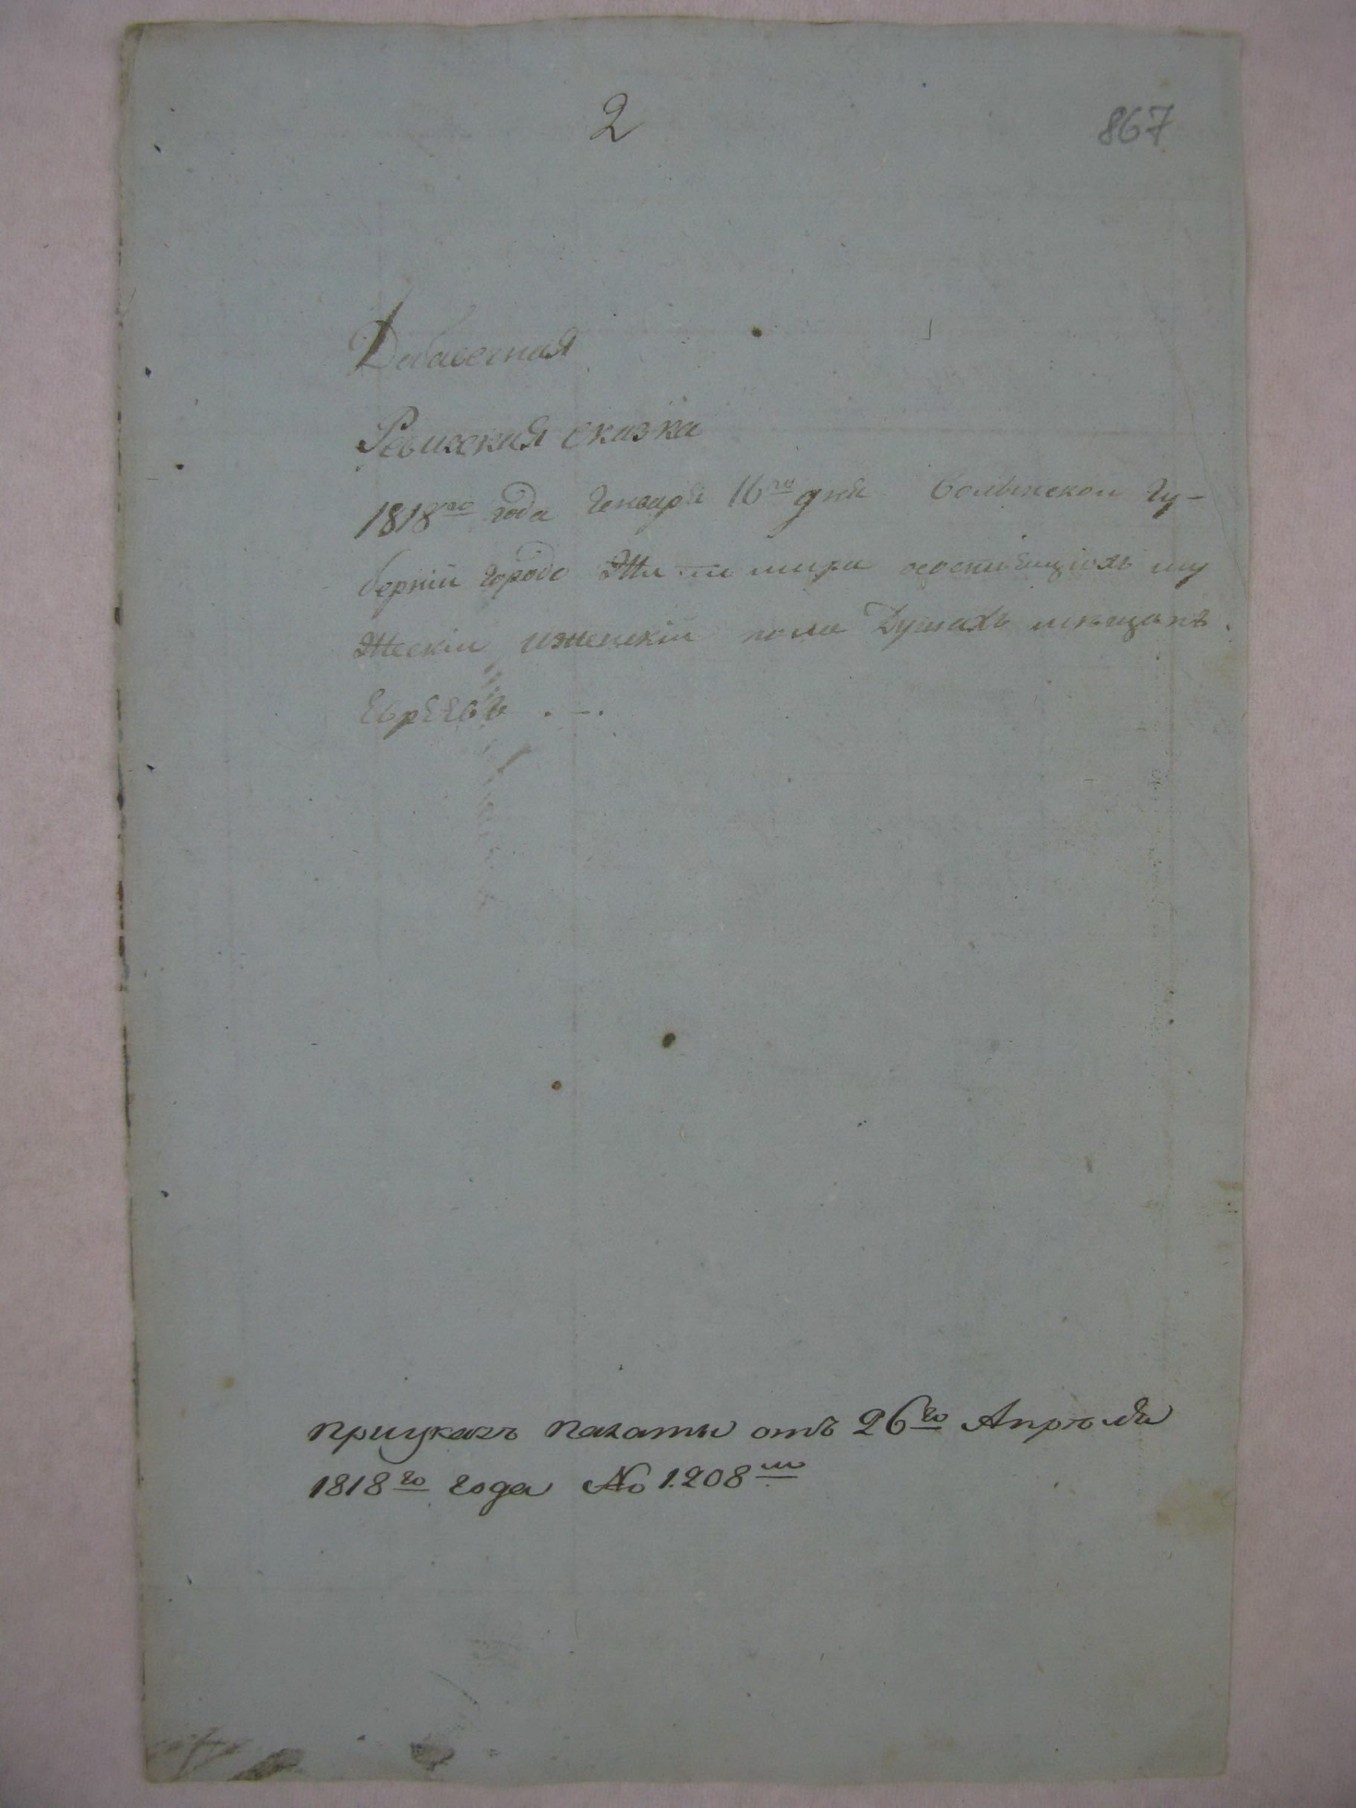 2
867
Добавочная
Ревиская сказка
1818го года Генваря 16го дня Волынской Гу-
бернiи города Житомира о состоящихъ му
жескiи иженскiи пола Душахъ мещанъ.
Евреевъ . — .
приуказъ палаты отъ 26го Апреля
1818го года No 1.208мо